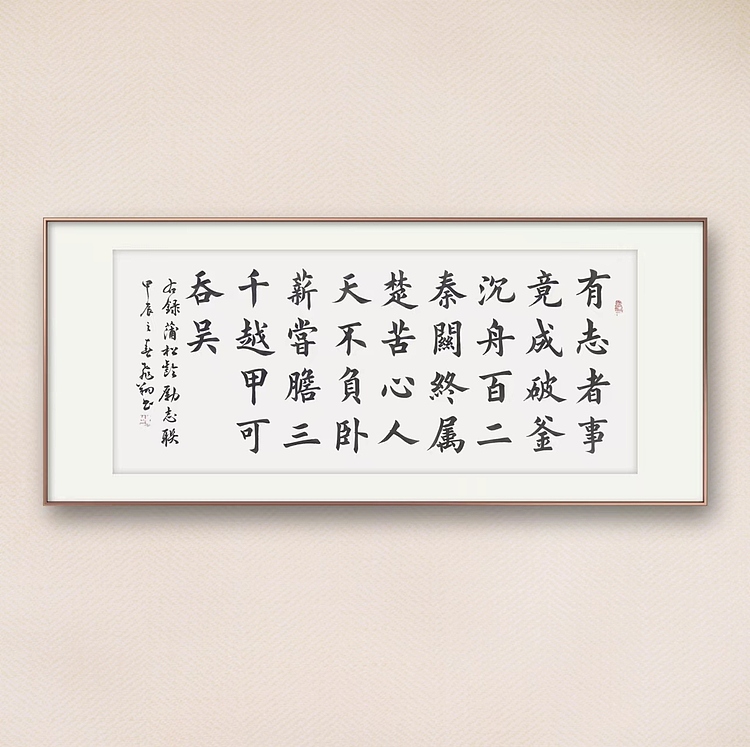 有志者事
竟成破釜
沉舟百二
秦關終属
楚苦心人
天不負卧
薪嘗膽三
千越甲可
吞吴
右録蒲松龄励志联
甲辰之春飛翔书